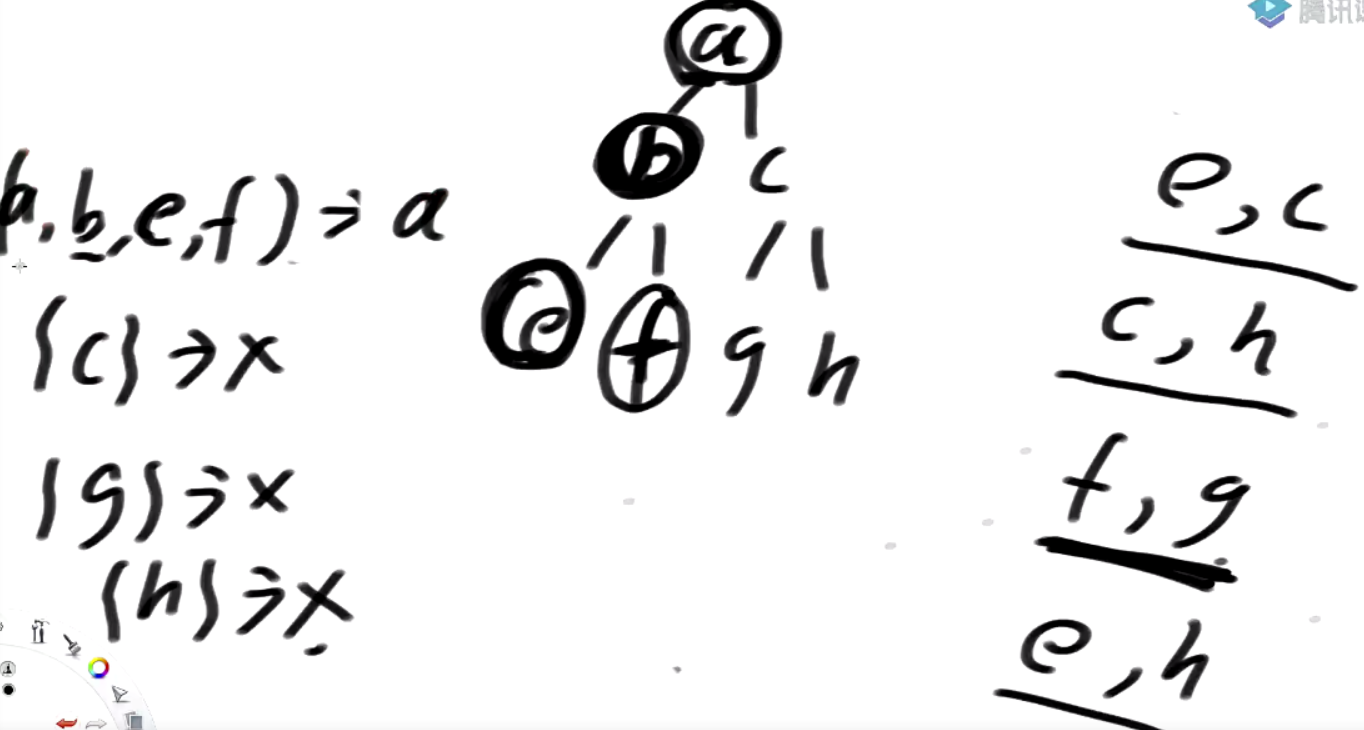 a
b c
e f g h
a,b,e,f) => a
{c} => x
{g} => x
{h} => x
e,c
c,h
f,g
e,h
腾讯